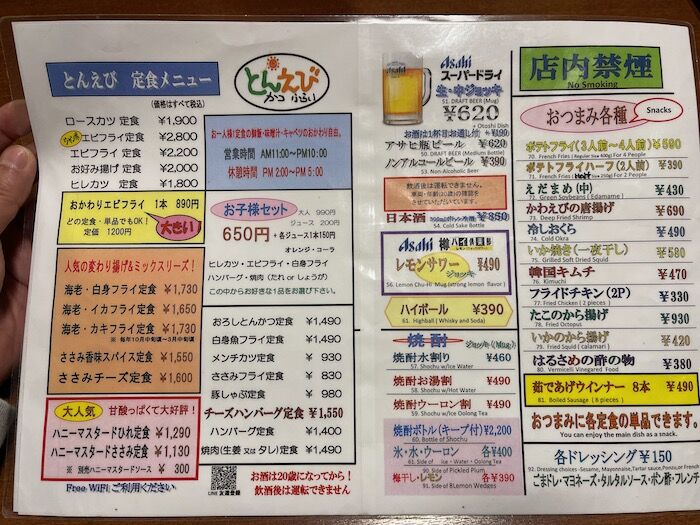 とんえび 定食メニュー
(価格はすべて税込)
とんえび
かつ ふらい
ロースカツ 定食 ¥1,900
エビフライ定食 ¥2,800
エビフライ 定食 ¥2,200
お好み揚げ 定食 ¥2,000
ヒレカツ 定食 ¥1,800
お一人様1定食の御飯・味噌汁・キャベツのおかわり自由。
営業時間 AM11:00~PM10:00
休憩時間 PM 2:00~PM 5:00
おかわりエビフライ 1本 890円
どの定食・単品でもOK!
定価 1200円
大きい
お子様セット 大人 990円
ジュース 200円
650円 +各ジュース1本150円
オレンジ・コーラ
ヒレカツ・エビフライ・白身フライ
ハンバーグ・焼肉(たれ or しょうが)
この中からお好きな1品をお選び下さい。
人気の変わり揚げ&ミックスリーズ!
海老・白身フライ定食 ¥1,730
海老・イカフライ定食 ¥1,650
海老・カキフライ定食 ¥1,730
※ 毎年10月中旬頃~3月中旬頃
ささみ香味スパイス定食 ¥1,550
ささみチーズ定食 ¥1,600
おろしとんかつ定食 ¥1,490
白身魚フライ定食 ¥1,490
メンチカツ定食 ¥ 930
ささみフライ定食 ¥ 830
豚しゃぶ定食 ¥ 980
チーズハンバーグ定食 ¥1,550
ハンバーグ定食 ¥1,400
焼肉(生姜 又は タレ)定食 ¥1,490
大人気 甘酸っぱくて大好評!
ハニーマスタードひれ定食 ¥1,290
ハニーマスタードささみ定食 ¥1,130
※ 別売ハニーマスタードソース ¥ 300
Free WiFi ご利用ください
LINE 友達登録
お酒は20歳になってから!
飲酒後は運転できません
Asahi
スーパードライ
生・中ジョッキ
51. DRAFT BEER (Mug)
¥620
+ Otoshi Dish
お酒は1杯目お通し付 +¥390
アサヒ瓶ビール ¥690
50. DRAFT BEER (Medium Bottle)
ノンアルコールビール ¥390
53. Non-Alcoholic Beer
飲酒後は運転できません。
日本酒 ¥350
54. Cold Sake Bottle
Asahi 樽ハイ倶楽部
レモンサワー ジョッキ ¥490
56. Lemon Chu-Hi Mug (strong lemon flavor)
ハイボール ¥390
61. Highball (Whisky and Soda)
焼酎 ジョッキ(Mug)
焼酎水割り ¥460
57. Shochu w/Ice Water
焼酎お湯割 ¥490
58. Shochu w/Hot Water
焼酎ウーロン割 ¥490
59. Shochu w/Ice Oolong Tea
焼酎ボトル(キープ付)¥2,200
60. Bottle of Shochu
氷・水・ウーロン 各¥400
61. Side of Ice・Water・Oolong Tea
90. Side of Pickled Plum
梅干し・レモン 各¥390
91. Side of 8Lemon Wedges
店内禁煙
No Smoking
おつまみ各種 Snacks
ポテトフライ(3人前~4人前)¥590
70. French Fries (Regular Size 500g) For 4 People
ポテトフライハーフ(2人前) ¥390
71. French Fries (Half Size 250g) For 2 People
えだまめ(中) ¥430
72. Green Soybeans (Edamame)
かわえびの唐揚げ ¥690
73. Deep Fried Shrimp
冷しおくら ¥430
74. Cold Okra
いか焼き(一夜干し) ¥580
75. Grilled Soft Dried Squid
韓国キムチ ¥470
76. Kimuchi
フライドチキン(2P) ¥330
77. Fried Chicken (2 pieces)
たこのから揚げ ¥930
78. Fried Octopus
いかのから揚げ ¥420
79. Fried Squid (calamari)
はるさめの酢の物 ¥380
80. Vermicelli Vinegared Food
茹であげウインナー 8本 ¥490
81. Boiled Sausage (8 pieces)
おつまみに各定食の単品できます。
You can enjoy the main dish as a snack.
各ドレッシング ¥150
92. Dressing choices -Sesame, Mayonnaise, Tartar sauce, Ponzu, or French
ごまドレ・マヨネーズ・タルタルソース・ポン酢・フレンチ